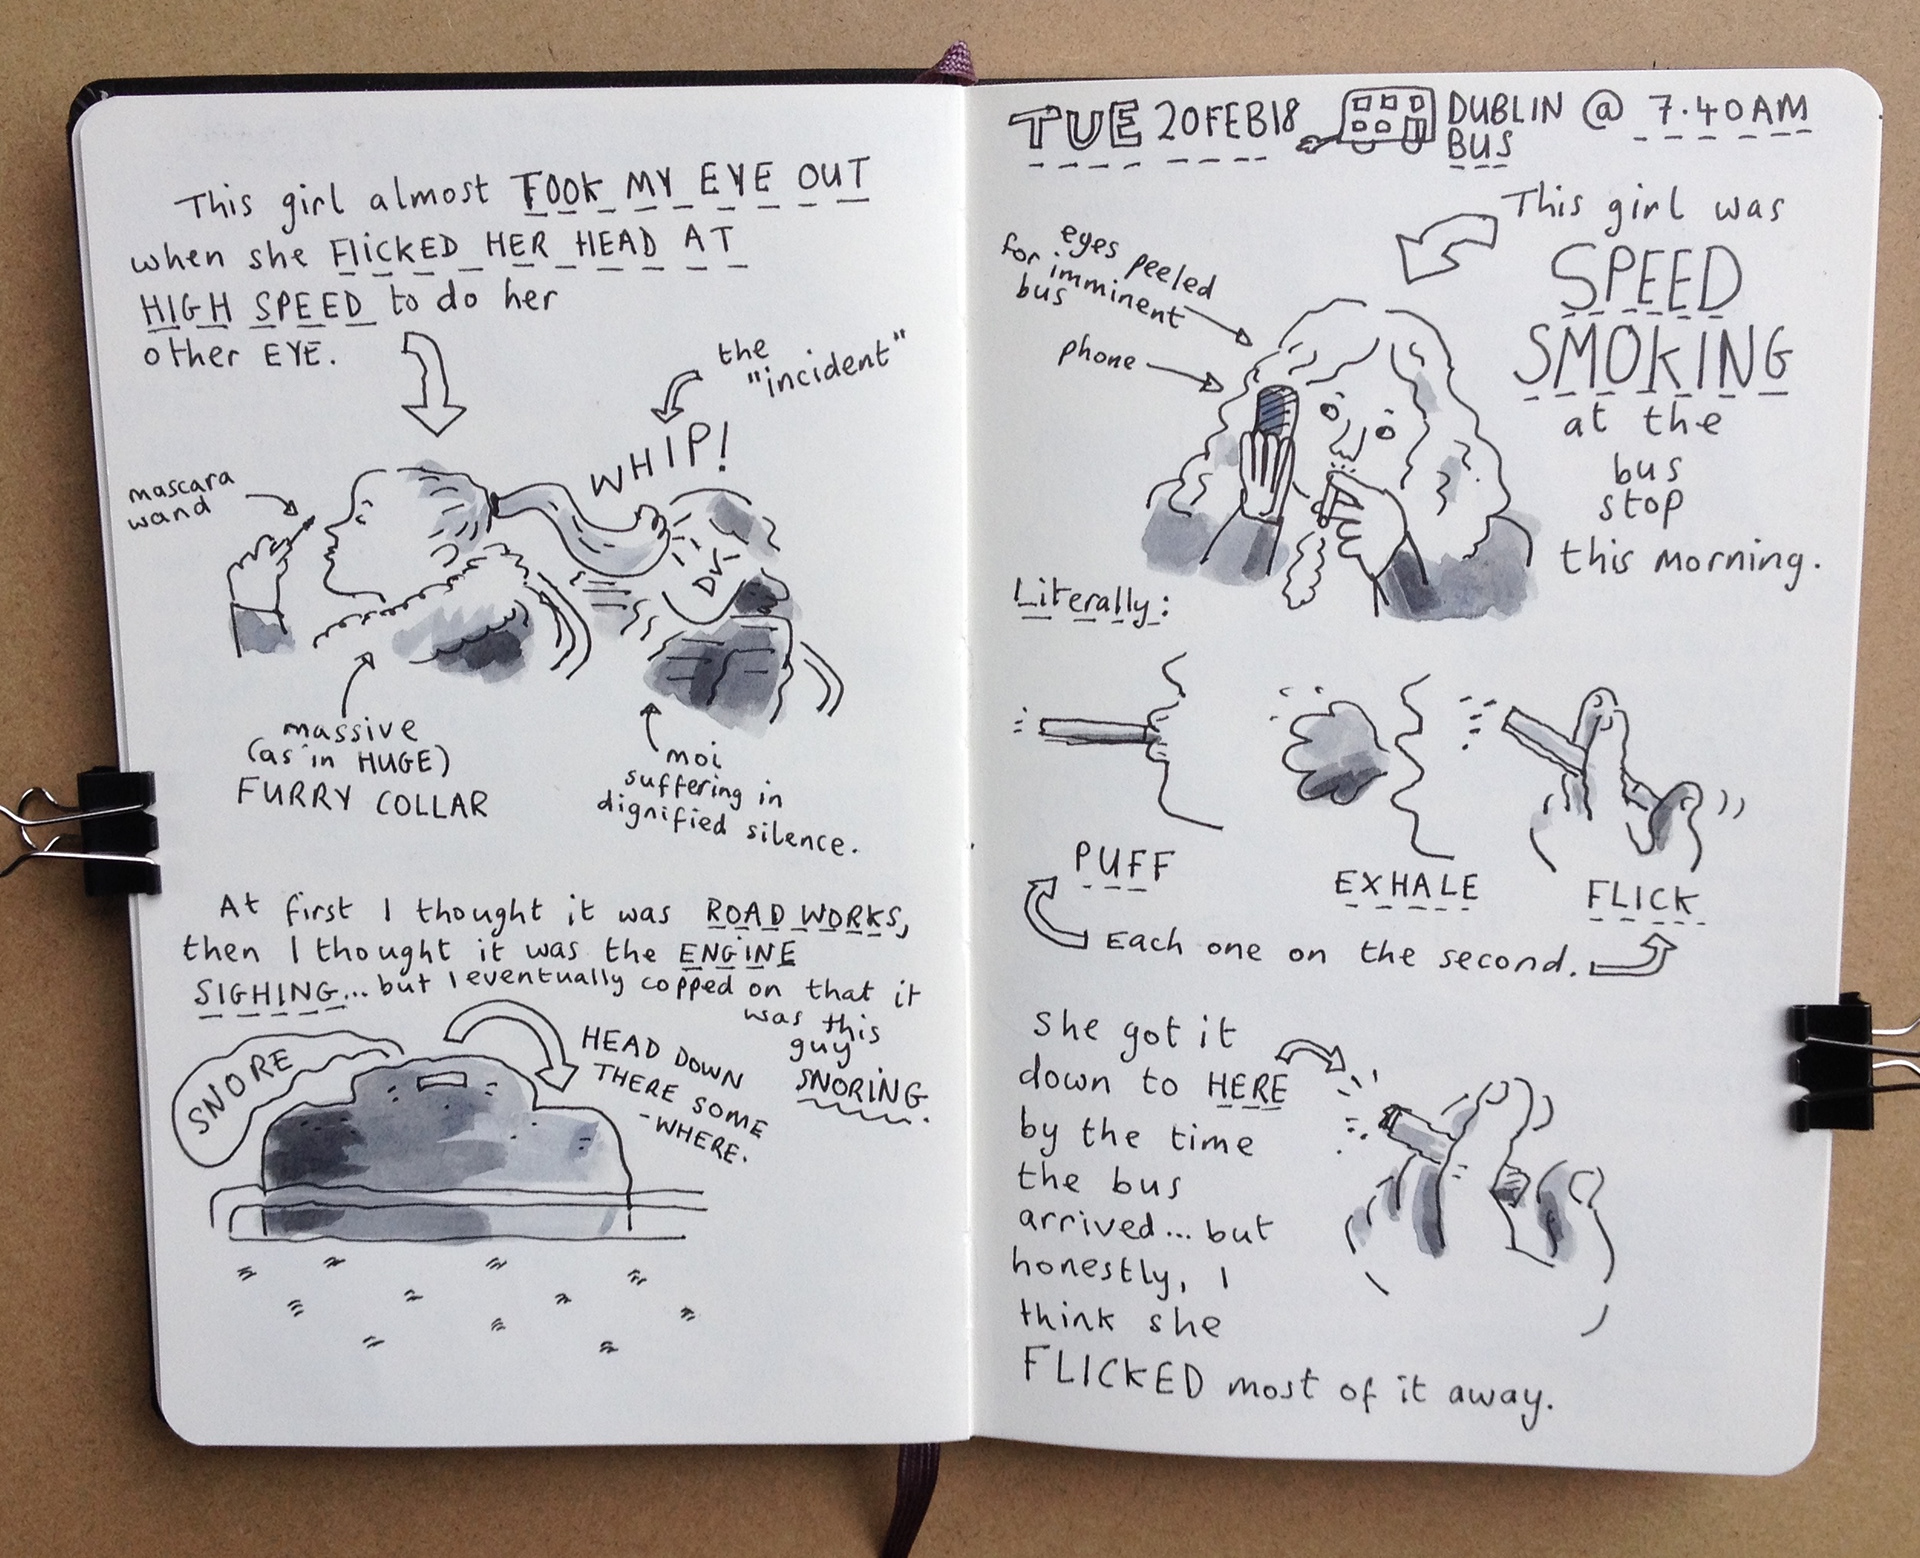 This girl almost TOOK MY EYE OUT
when she FLICKED HER HEAD AT
HIGH SPEED to do her
other EYE.
the
"incident"
WHIP!
mascara
wand
massive
(as in HUGE)
FURRY COLLAR
moi
suffering in
dignified silence.
At first I thought it was ROAD WORKS,
then I thought it was the ENGINE
SIGHING... but I eventually copped on that it
was this
guy
SNORING.
SNORE
HEAD DOWN
THERE SOME
-WHERE.
TUE 20FEB18 DUBLIN @ 7.40AM
BUS
This girl was
SPEED
SMOKING
at the
bus
stop
this morning.
eyes peeled
for imminent
bus
phone
Literally:
PUFF
EXHALE
FLICK
Each one on the second.
She got it
down to HERE
by the time
the bus
arrived... but
honestly, I
think she
FLICKED most of it away.